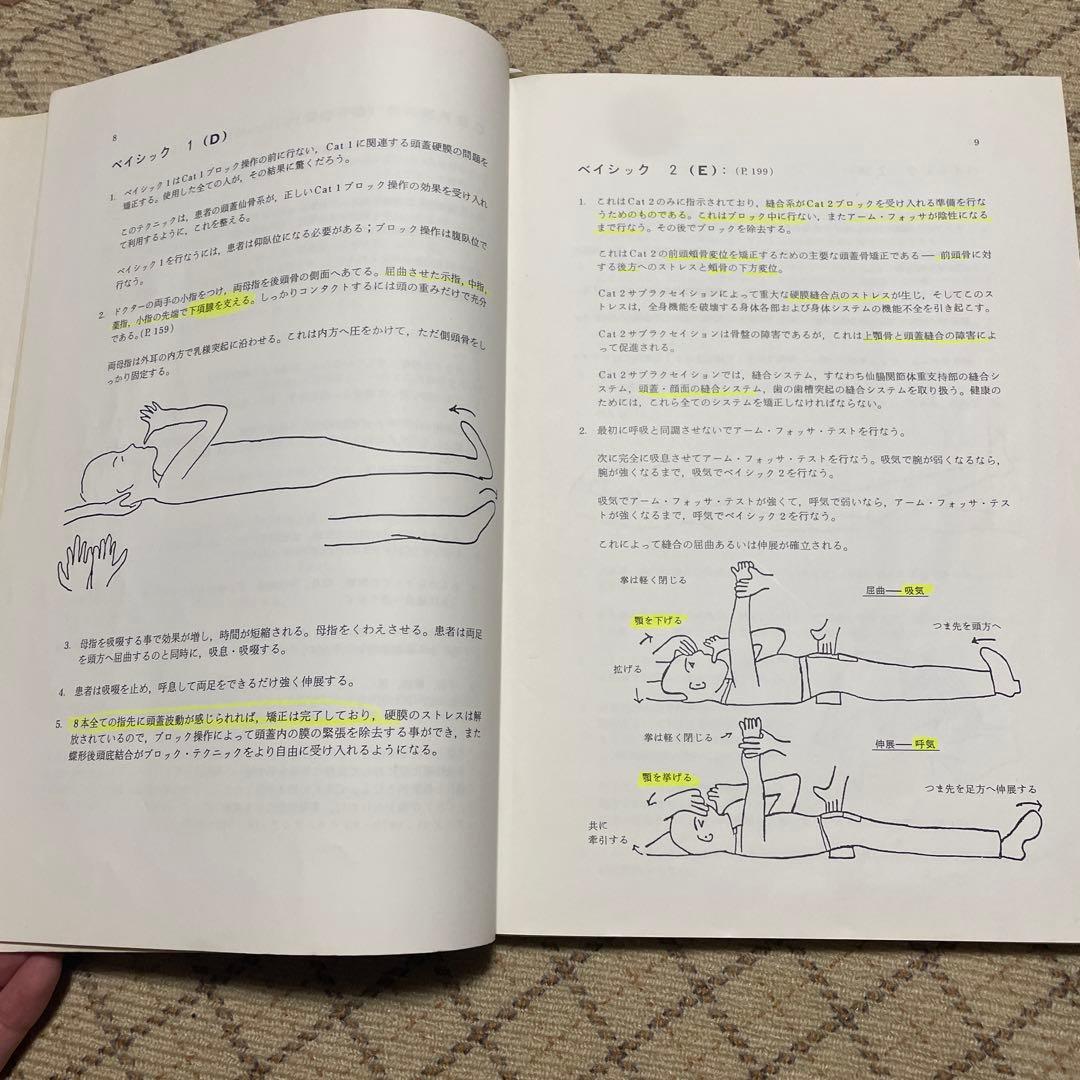 8
ベイシック 1 (D)
1. ベイシック1はCat 1ブロック操作の前に行ない, Cat 1に関連する頭蓋硬膜の問題を
矯正する。使用した全ての人が, その結果に驚くだろう。
このテクニックは, 患者の頭蓋仙骨系が, 正しいCat 1ブロック操作の効果を受け入れ
て利用するように, これを整える。
ベイシック1を行なうには, 患者は仰臥位になる必要がある；ブロック操作は腹臥位で
行なう。
2. ドクターの両手の小指をつけ, 両母指を後頭骨の側面へあてる。屈曲させた示指, 中指,
薬指, 小指の先端で下項腺を支える。しっかりコンタクトするには頭の重みだけで充分
である。(P. 159)
両母指は外耳の内方で乳様突起に沿わせる。これは内方へ圧をかけて, ただ側頭骨をし
っかり固定する。
3. 母指を吸啜する事で効果が増し, 時間が短縮される。母指をくわえさせる。患者は両足
を頭方へ屈曲するのと同時に, 吸息・吸啜する。
4. 患者は吸啜を止め, 呼息して両足をできるだけ強く伸展する。
5. 8本全ての指先に頭蓋波動が感じられれば, 矯正は完了しており, 硬膜のストレスは解
放されているので, ブロック操作によって頭蓋内の膜の緊張を除去する事ができ, また
蝶形後頭底結合がブロック・テクニックをより自由に受け入れるようになる。
9
ベイシック 2 (E)： (P. 199)
1. これはCat 2のみに指示されており, 縫合系がCat 2ブロックを受け入れる準備を行な
うためのものである。これはブロック中に行ない, またアーム・フォッサが陰性になる
まで行なう。その後でブロックを除去する。
これはCat 2の前頭頬骨変位を矯正するための主要な頭蓋骨矯正である ― 前頭骨に対
する後方へのストレスと頬骨の下方変位。
Cat 2サブラクセイションによって重大な硬膜縫合点のストレスが生じ, そしてこのス
トレスは, 全身機能を破壊する身体各部および身体システムの機能不全を引き起こす。
Cat 2サブラクセイションは骨盤の障害であるが, これは上顎骨と頭蓋縫合の障害によ
って促進される。
Cat 2サブラクセイションでは, 縫合システム, すなわち仙腸関節体重支持部の縫合シ
ステム, 頭蓋・顔面の縫合システム, 歯の歯槽突起の縫合システムを取り扱う。健康の
ためには, これら全てのシステムを矯正しなければならない。
2. 最初に呼吸と同調させないでアーム・フォッサ・テストを行なう。
次に完全に吸息させてアーム・フォッサ・テストを行なう。吸気で腕が弱くなるなら,
腕が強くなるまで, 吸気でベイシック2を行なう。
吸気でアーム・フォッサ・テストが強くて, 呼気で弱いなら, アーム・フォッサ・テス
トが強くなるまで, 呼気でベイシック2を行なう。
これによって縫合の屈曲あるいは伸展が確立される。
掌は軽く閉じる
屈曲 ― 吸気
顎を下げる
つま先を頭方へ
拡げる
掌は軽く閉じる
伸展 ― 呼気
顎を挙げる
つま先を足方へ伸展する
共に
牽引する